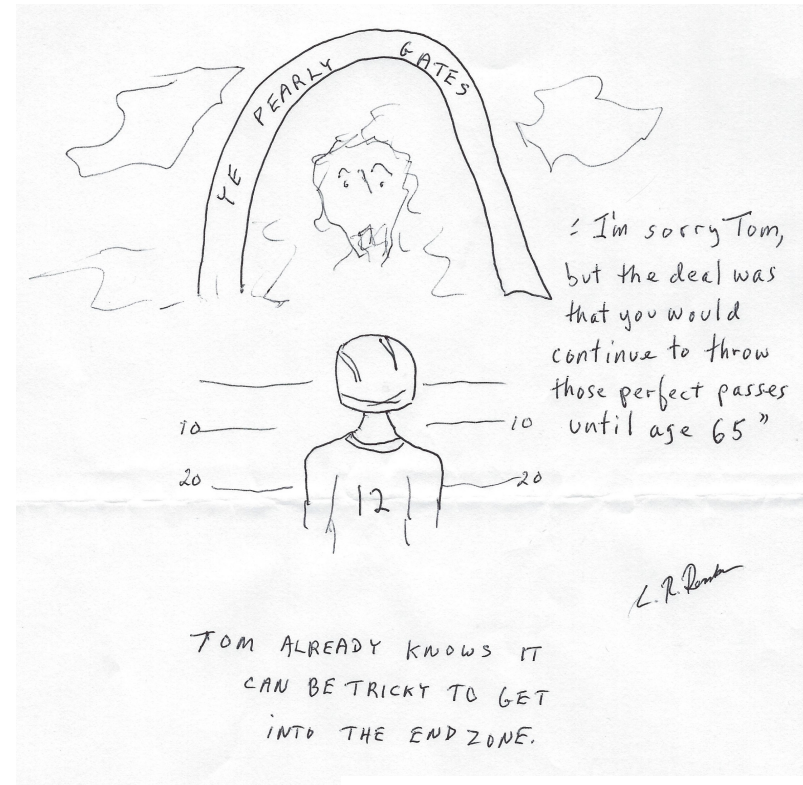 YE PEARLY GATES
"I'm sorry Tom,
but the deal was
that you would
continue to throw
those perfect passes
until age 65"
10 10
20 20
12
L. R.
TOM ALREADY KNOWS IT
CAN BE TRICKY TO GET
INTO THE END ZONE.